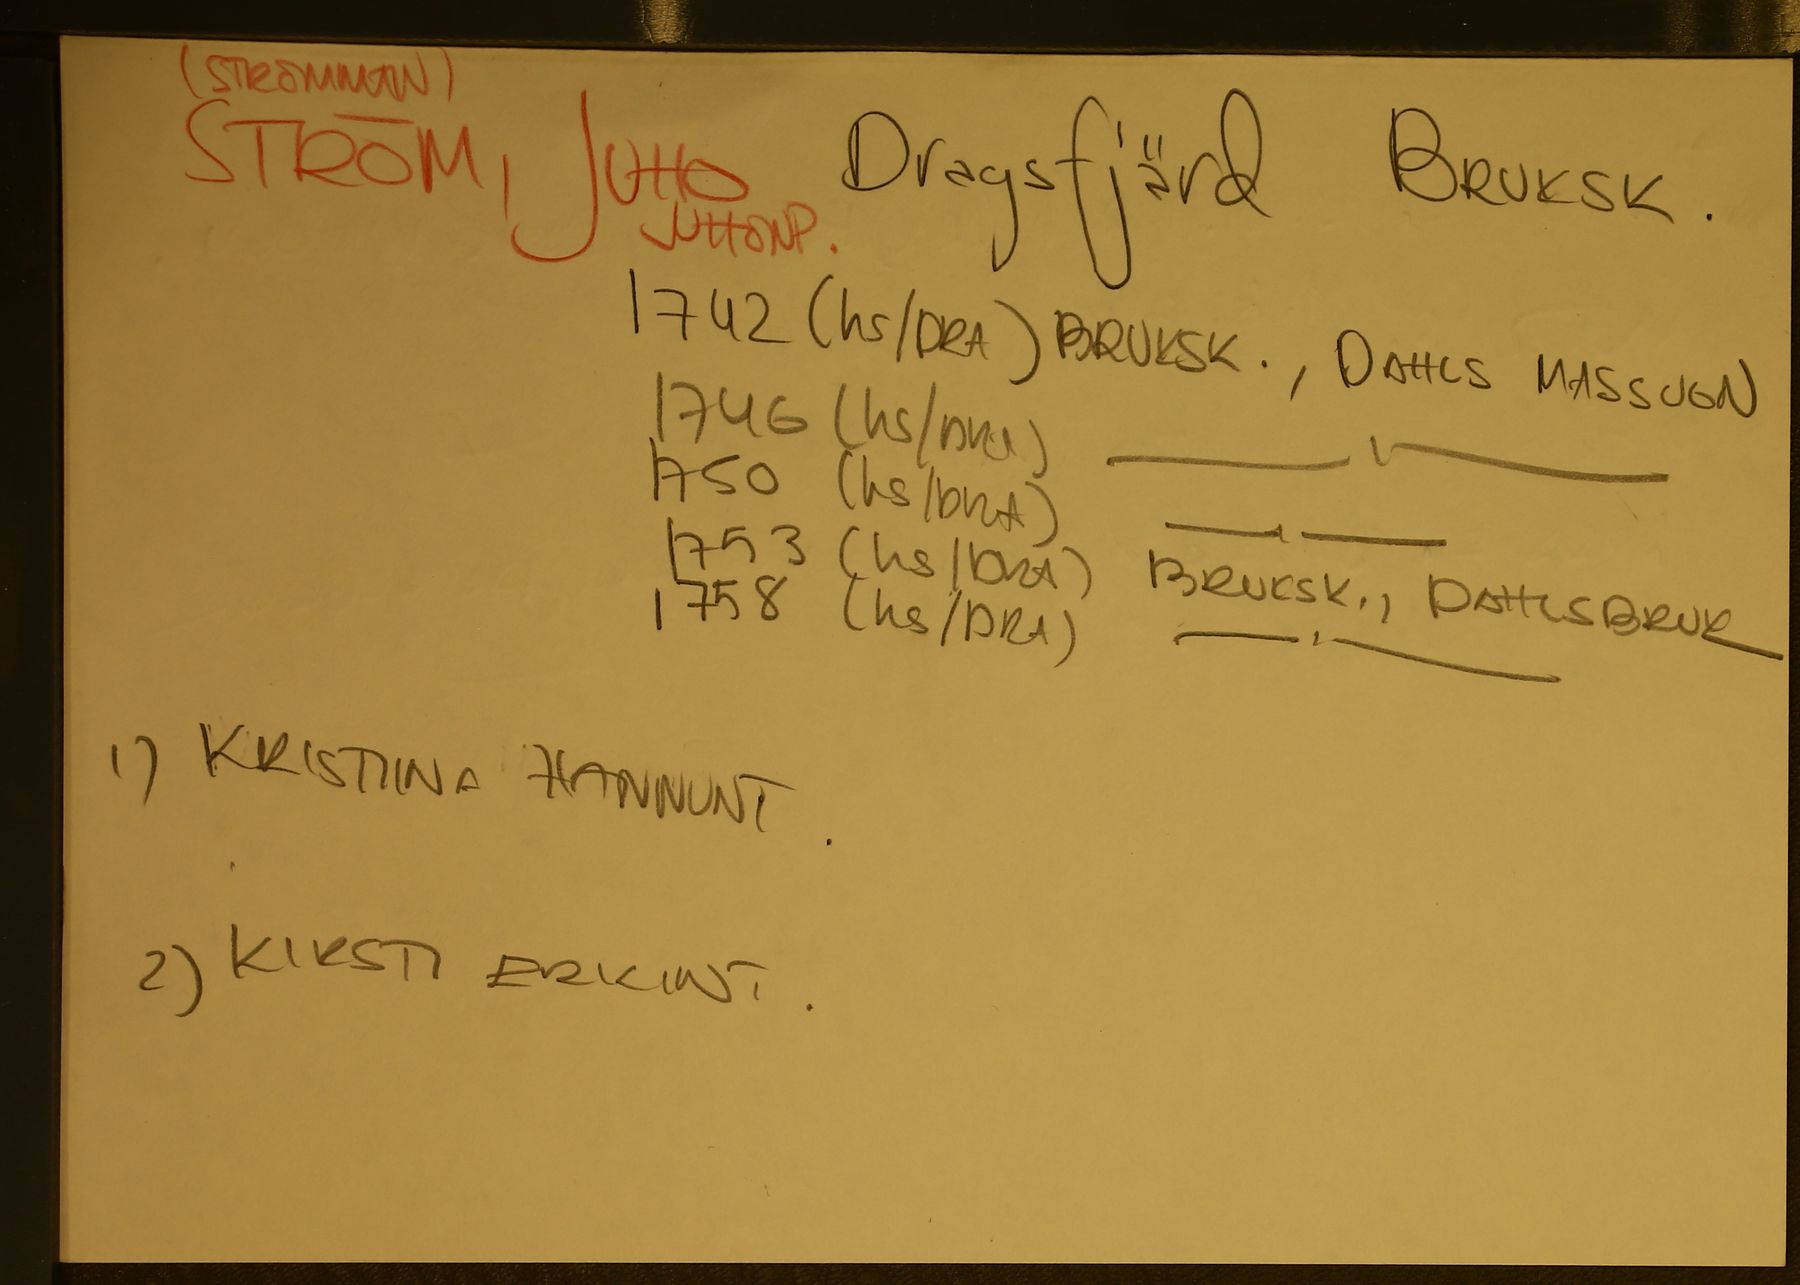 (STRÖMMAN)
STRÖM, JUHO Dragsfjärd BRUKSK.
JUHONP.
1742 (hs/DRA) BRUKSK., DAHLS MASSUGN
1746 (hs/DRA) —— , ——
1750 (hs/DRA) —— , ——
1753 (hs/DRA) BRUKSK., DAHLSBRUK
1758 (hs/DRA) —— , ——
1) KRISTIINA HANNUNT.
2) KIRSTI ERKINT.